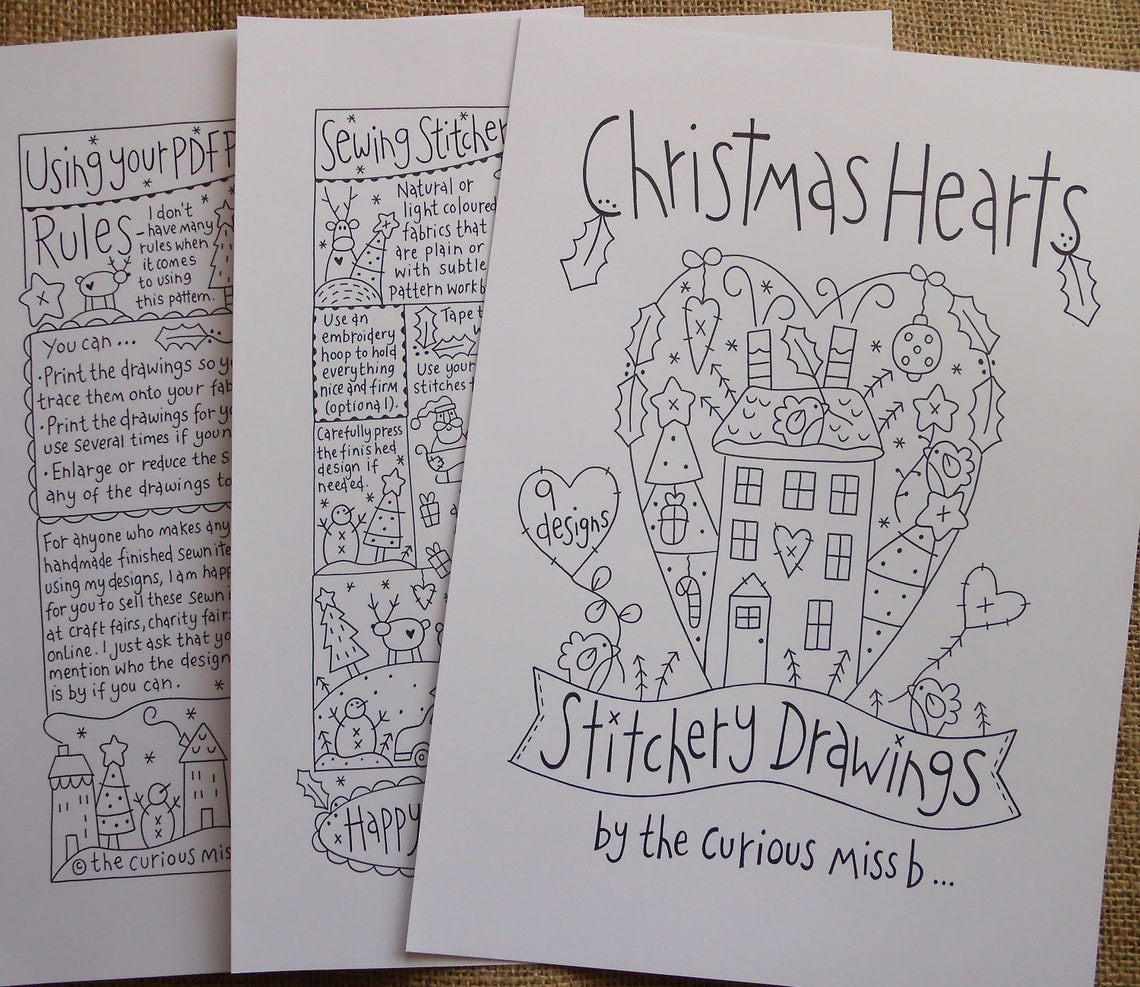 Using your PDF P
Rules
I don't
- have many
rules when
it comes
to using
this pattern.
You can ...
• Print the drawings so y
trace them onto your fab
• Print the drawings for y
use several times if your
• Enlarge or reduce the s
any of the drawings to
For anyone who makes any
handmade finished sewn ite
using my designs, I am happ
for you to sell these sewn i
at craft fairs, charity fair
online. I just ask that yo
mention who the design
is by if you can.
© the curious mis
Sewing Stitcher
Natural or
light coloured
fabrics that
are plain or
with subtle
pattern work b
Use an
embroidery
hoop to hold
everything
nice and firm
(optional).
Tape t
Use your
stitches
Carefully press
the finished
design if
needed.
Happy
Christmas Hearts
9
designs
Stitchery Drawings
by the curious miss b...